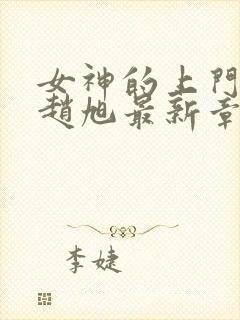 女神的上門
趙旭最新章
李婕